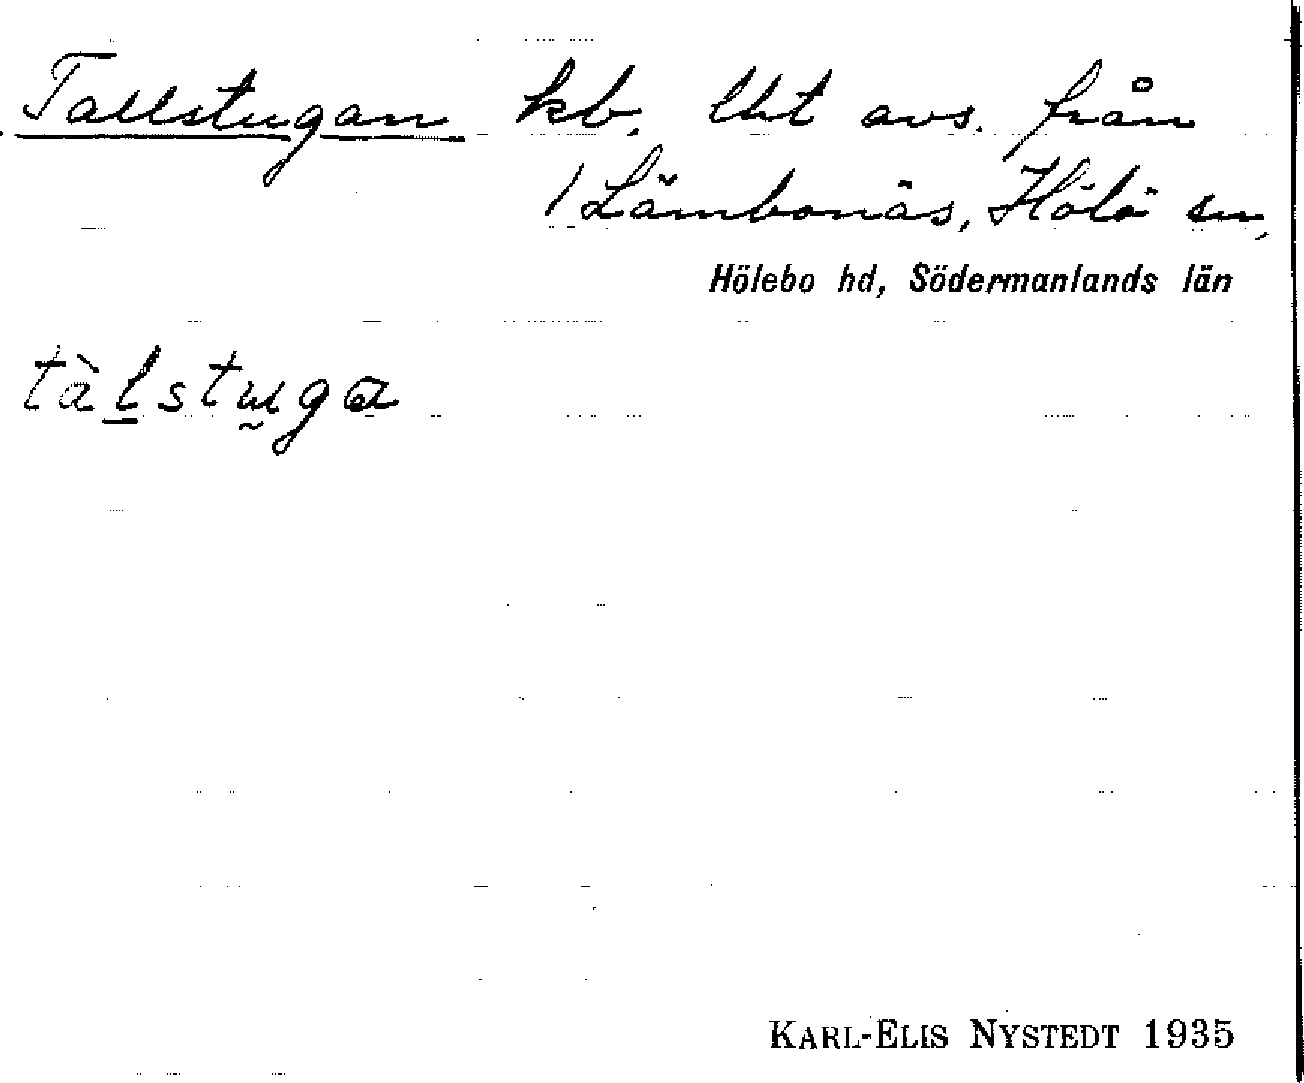 Tallstugan kb. lht avs. från
1 Lämbonäs, Hölö sn,
Hölebo hd, Södermanlands län
tàlstuga
KARL-ELIS NYSTEDT 1935